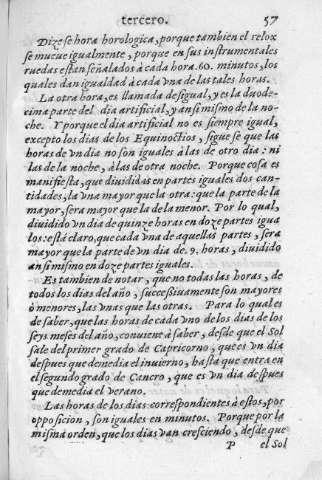 tercero. 57
Dizese hora horologica, porque tambien el relox
se mueue igualmente, porque en sus instrumentales
ruedas estan señalados à cada hora. 60. minutos, los
quales dan igualdad à cada vna de las tales horas.
La otra hora, es llamada desigual, y es la duode-
cima parte del dia artificial, y ansimismo de la no-
che. Y porque el dia artificial no es siempre igual,
excepto los dias de los Equinoctios, sigue se que las
horas de vn dia no son iguales à las de otro dia: ni
las de la noche, à las de otra noche. Porque cosa es
manifiesta, que diuididas en partes iguales dos can-
tidades, la vna mayor que la otra: que la parte de la
mayor, sera mayor que la de la menor. Por lo qual,
diuidido vn dia de quinze horas en doze partes igua
les: està claro, que cada vna de aquellas partes, sera
mayor que la parte de vn dia de. 9. horas, diuidido
ansimismo en doze partes iguales.
Es tambien de notar, que no todas las horas, de
todos los dias del año, successiuamente son mayores
ò menores, las vnas que las otras. Para lo qual es
de saber, que las horas de cada vno de los dias de los
seys meses del año, conuiene à saber, desde que el Sol
sale del primer grado de Capricorno, que es vn dia
despues que demedia el inuierno, hasta que entra en
el segundo grado de Cancro, que es vn dia despues
que demedia el verano.
Las horas de los dias correspondientes à estos, por
opposicion, son iguales en minutos. Porque por la
misma orden, que los dias van cresciendo, desde que
P el Sol